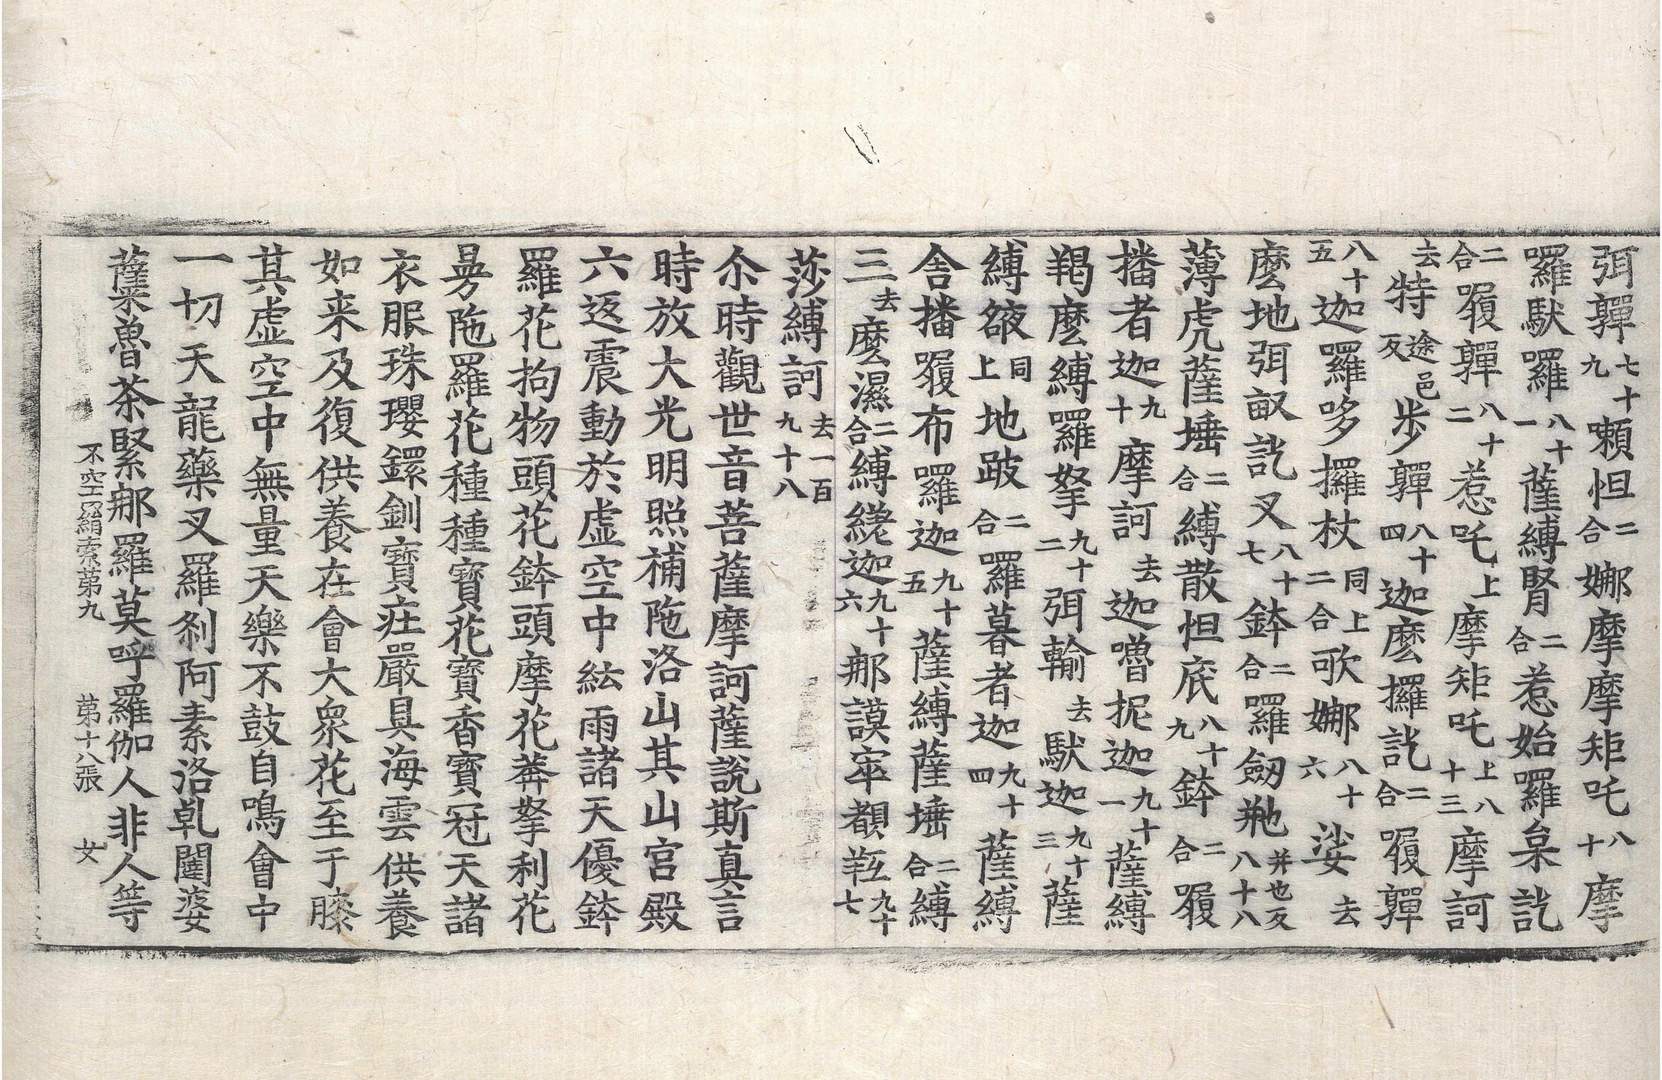 弭嚲七十九嬾怛二合娜摩摩矩吒八十摩
囉馱囉八十一薩縛腎二合惹始羅㒵訖
二合履嚲八十二惹吒上摩矩吒上八十三摩訶
去特途邑反步嚲八十四迦麼攞訖二合履嚲
八十五迦羅哆攞杖同上二合歌娜八十六娑去
麼地弭䟦訖叉八十七鉢二合羅劔㧗并也反八十八
薄虎薩埵二合縛散怛底八十九鉢二合履
播者迦九十摩訶去迦嚕抳迦九十一薩縛
羯麼縛羅拏九十二弭輸去馱迦九十三薩
縛䫂同上地跛二合羅暮者迦九十四薩縛
舍播履布羅迦九十五薩縛薩埵二合縛
三去麼濕二合縛䌈迦九十六那謨窣覩羝九十七
莎縛訶去一百九十八
尒時觀世音菩薩摩訶薩說斯真言
時放大光明照補陁洛山其山宮殿
六返震動於虛空中紜雨諸天優鉢
羅花拘物頭花鉢頭摩花莾拏利花
曼陁羅花種種寶花寶香寶冠天諸
衣服珠瓔鐶釧寶莊嚴具海雲供養
如来及復供養在會大衆花至于膝
其虛空中無量天樂不鼓自鳴會中
一切天龍藥叉羅剎阿素洛乹闥婆
蘗魯荼緊那羅莫呼羅伽人非人等
不空羂索苐九 苐十八張 女